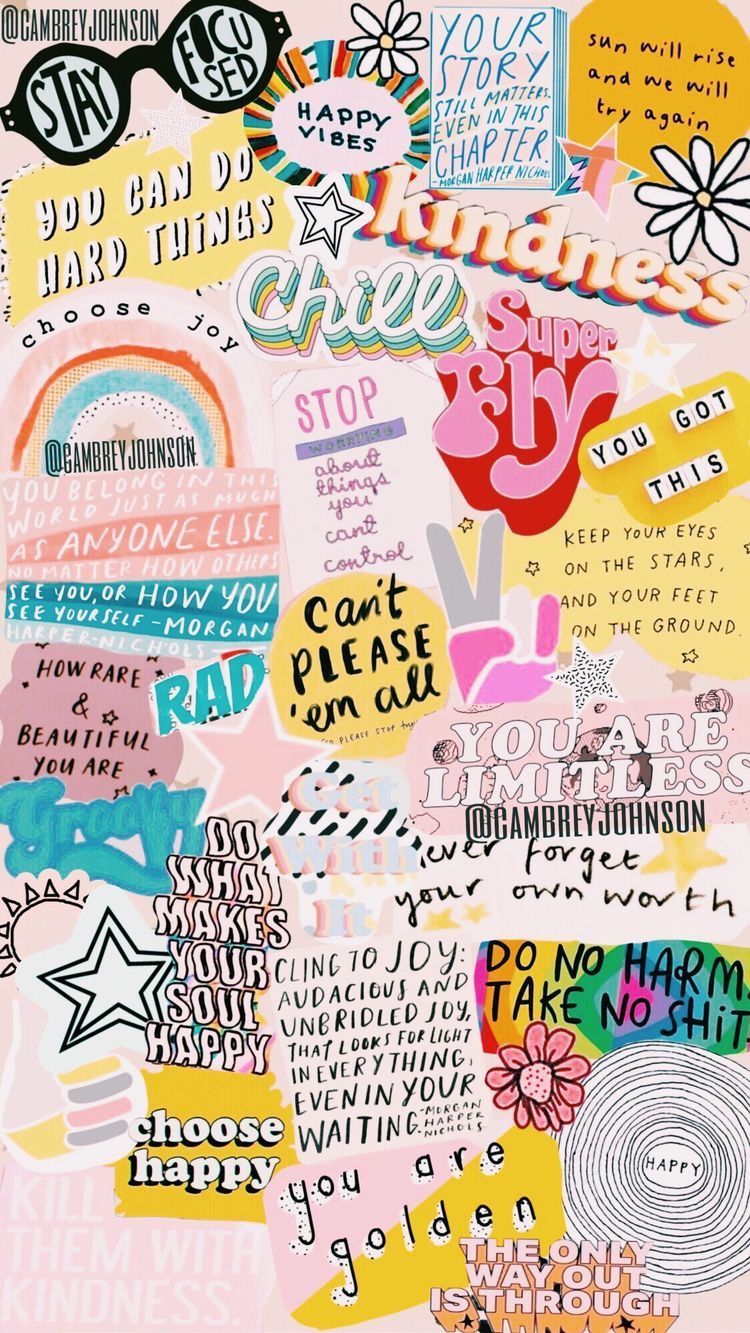 @CAMBREYJOHNSON
STAY
FOCU
SED
HAPPY
VIBES
YOUR
STORY
STILL MATTERS.
EVEN IN THIS
CHAPTER.
-MORGAN HARPER NICHOLS
sun will rise
and we will
try again
YOU CAN DO
HARD THINGS
kindness
choose joy
Chill
Super
Fly
@CAMBREYJOHNSON
STOP
WORRYING
about
things
you
can't
control
YOU GOT
THIS
YOU BELONG IN THIS
WORLD JUST AS MUCH
AS ANYONE ELSE.
NO MATTER HOW OTHERS
SEE YOU, OR HOW YOU
SEE YOURSELF -MORGAN
HARPER-NICHOLS
KEEP YOUR EYES
ON THE STARS,
AND YOUR FEET
ON THE GROUND.
Can't
PLEASE
'em all
PLEASE STOP
HOW RARE
&
BEAUTIFUL
YOU ARE
RAD
YOU ARE
LIMITLESS
@CAMBREYJOHNSON
Groovy
Get
With
It
DO
WHAT
MAKES
YOUR
SOUL
HAPPY
never forget
your own worth
CLING TO JOY:
AUDACIOUS AND
UNBRIDLED JOY,
THAT LOOKS FOR LIGHT
IN EVERYTHING,
EVEN IN YOUR
WAITING. -MORGAN
HARPER
NICHOLS
DO NO HARM.
TAKE NO SHIT.
choose
happy
HAPPY
you are
golden
KILL
THEM WITH
KINDNESS.
THE ONLY
WAY OUT
IS THROUGH